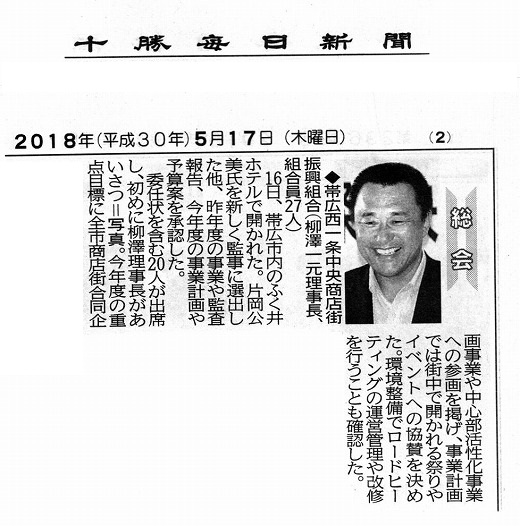 十勝毎日新聞
2018年(平成30年)5月17日(木曜日) (2)
総会
◆帯広西一条中央商店街
振興組合(柳澤一元理事長、
組合員27人)
16日、帯広市内のふく井
ホテルで開かれた。片岡公
美氏を新しく監事に選出し
た他、昨年度の事業や監査
報告、今年度の事業計画や
予算案を承認した。
委任状を含む20人が出席
し、初めに柳澤理事長があ
いさつ＝写真。今年度の重
点目標に全市商店街合同企
画事業や中心部活性化事業
への参画を掲げ、事業計画
では街中で開かれる祭りや
イベントへの協賛を決め
た。環境整備でロードヒー
ティングの運営管理や改修
を行うことも確認した。